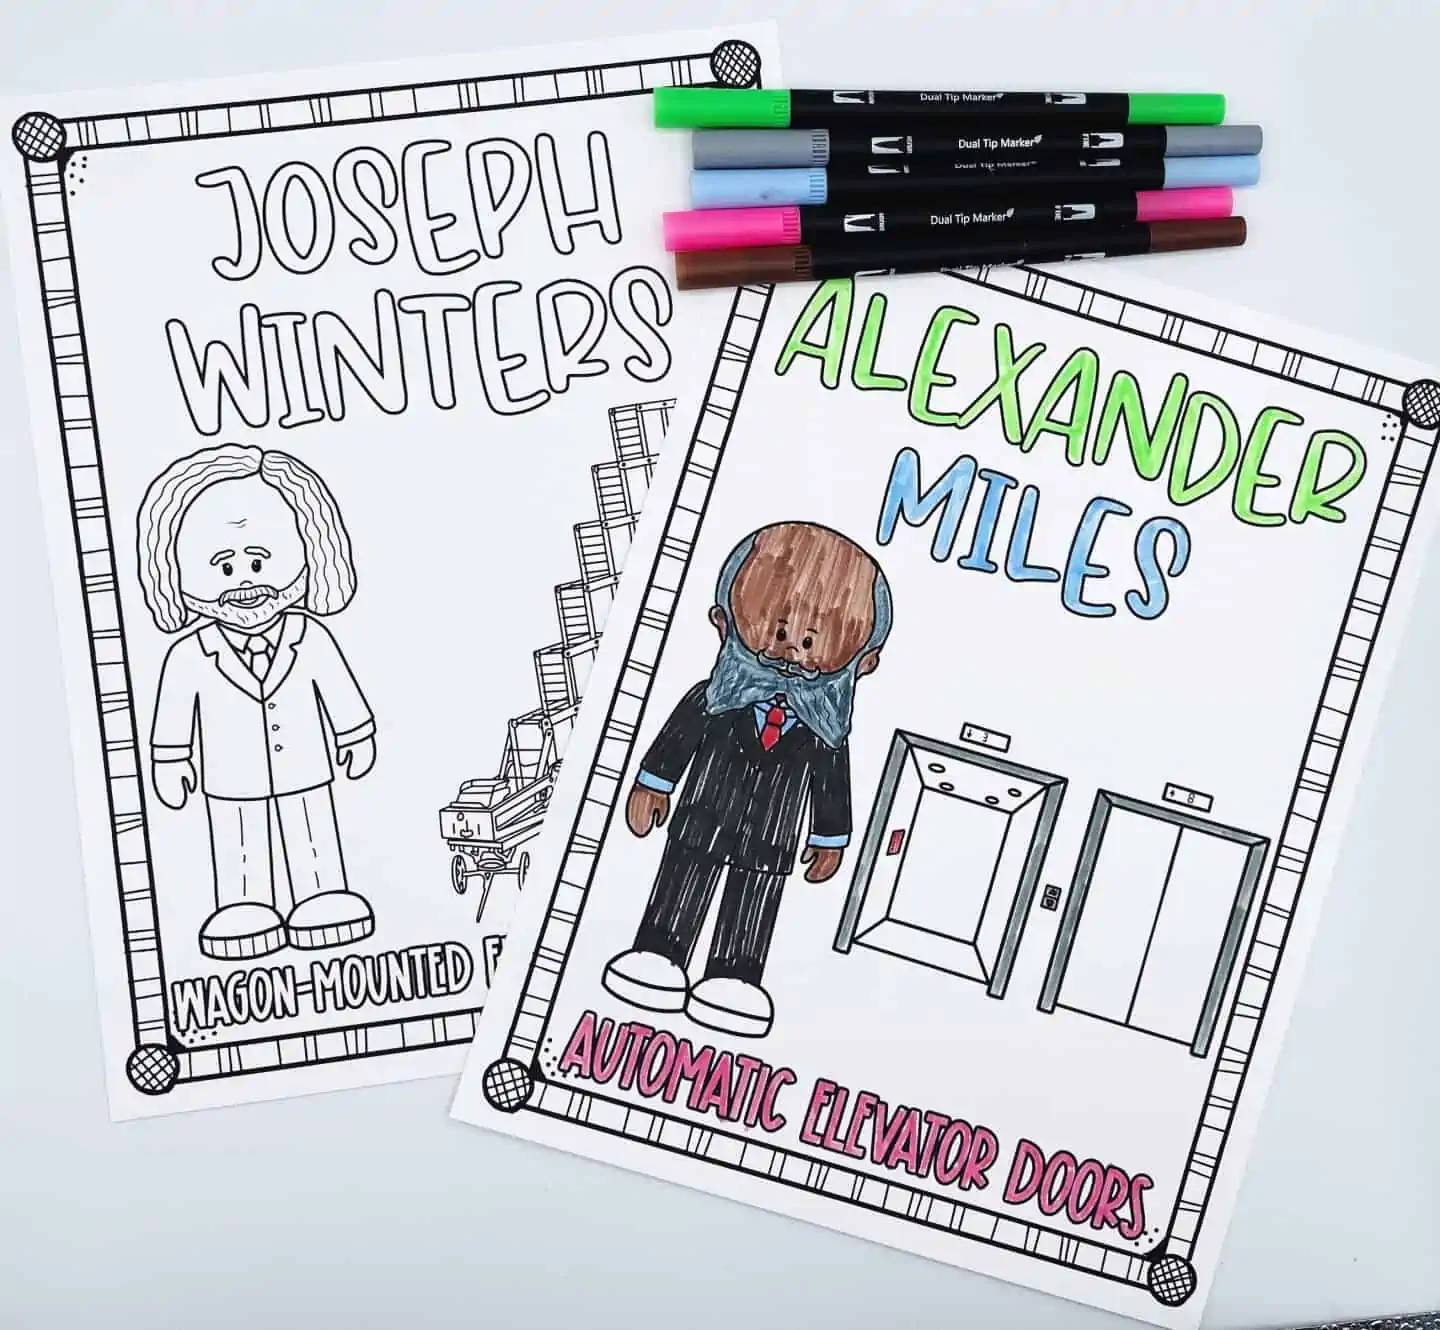 JOSEPH
WINTERS
WAGON-MOUNTED
Dual Tip Marker
Dual Tip Marker
Dual Tip Marker
ALEXANDER
MILES
3
8
AUTOMATIC ELEVATOR DOORS